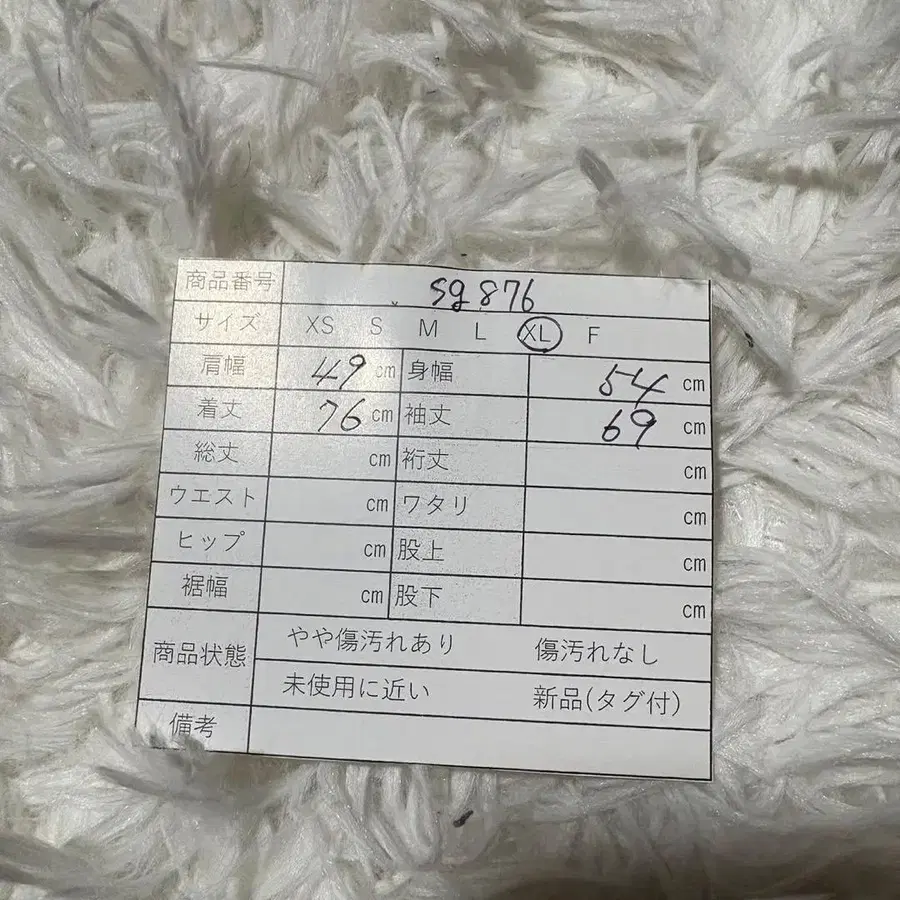 商品番号 sg876
サイズ XS S M L XL F
肩幅 49 cm 身幅 54 cm
着丈 76 cm 袖丈 69 cm
総丈 cm 裄丈 cm
ウエスト cm ワタリ cm
ヒップ cm 股上 cm
裾幅 cm 股下 cm
商品状態 やや傷汚れあり 傷汚れなし
未使用に近い 新品(タグ付)
備考